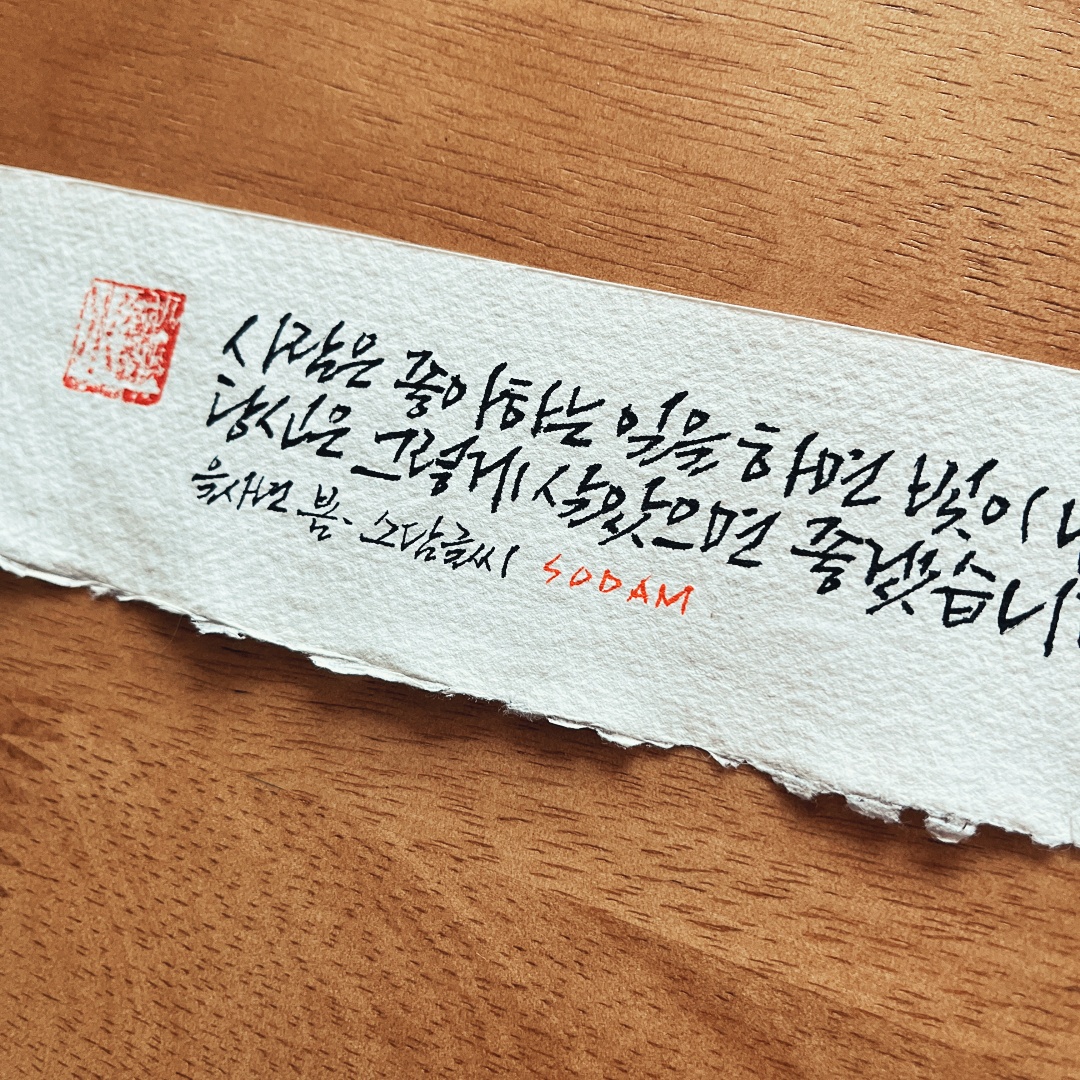 사람은 좋아하는 일을 하면 빛이
당신은 그렇게 살았으면 좋겠습니
을사년 봄. 소담글씨 SODAM